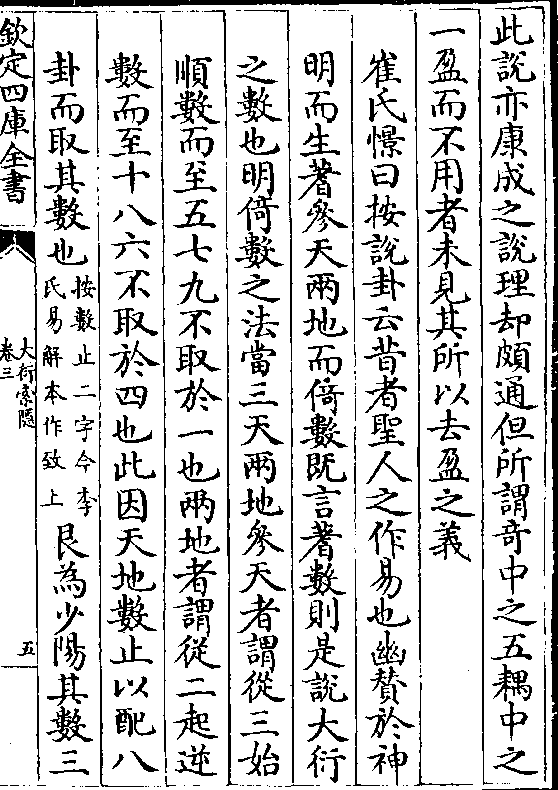 此說亦康成之說理却頗通但所謂奇中之五耦中之
一盈而不用者未見其所以去盈之義
崔氏憬曰按說卦云昔者聖人之作易也幽賛於神
明而生蓍參天兩地而倚數既言蓍數則是說大衍
之數也明倚數之法當三天兩地參天者謂從三始
順數而至五七九不取於一也兩地者謂從二起逆
數而至十八六不取於四也此因天地數止以配八
卦而取其數也按數止二字今李氏易解本作致上艮為少陽其數三
欽定四庫全書
大衍索隱
卷三
五